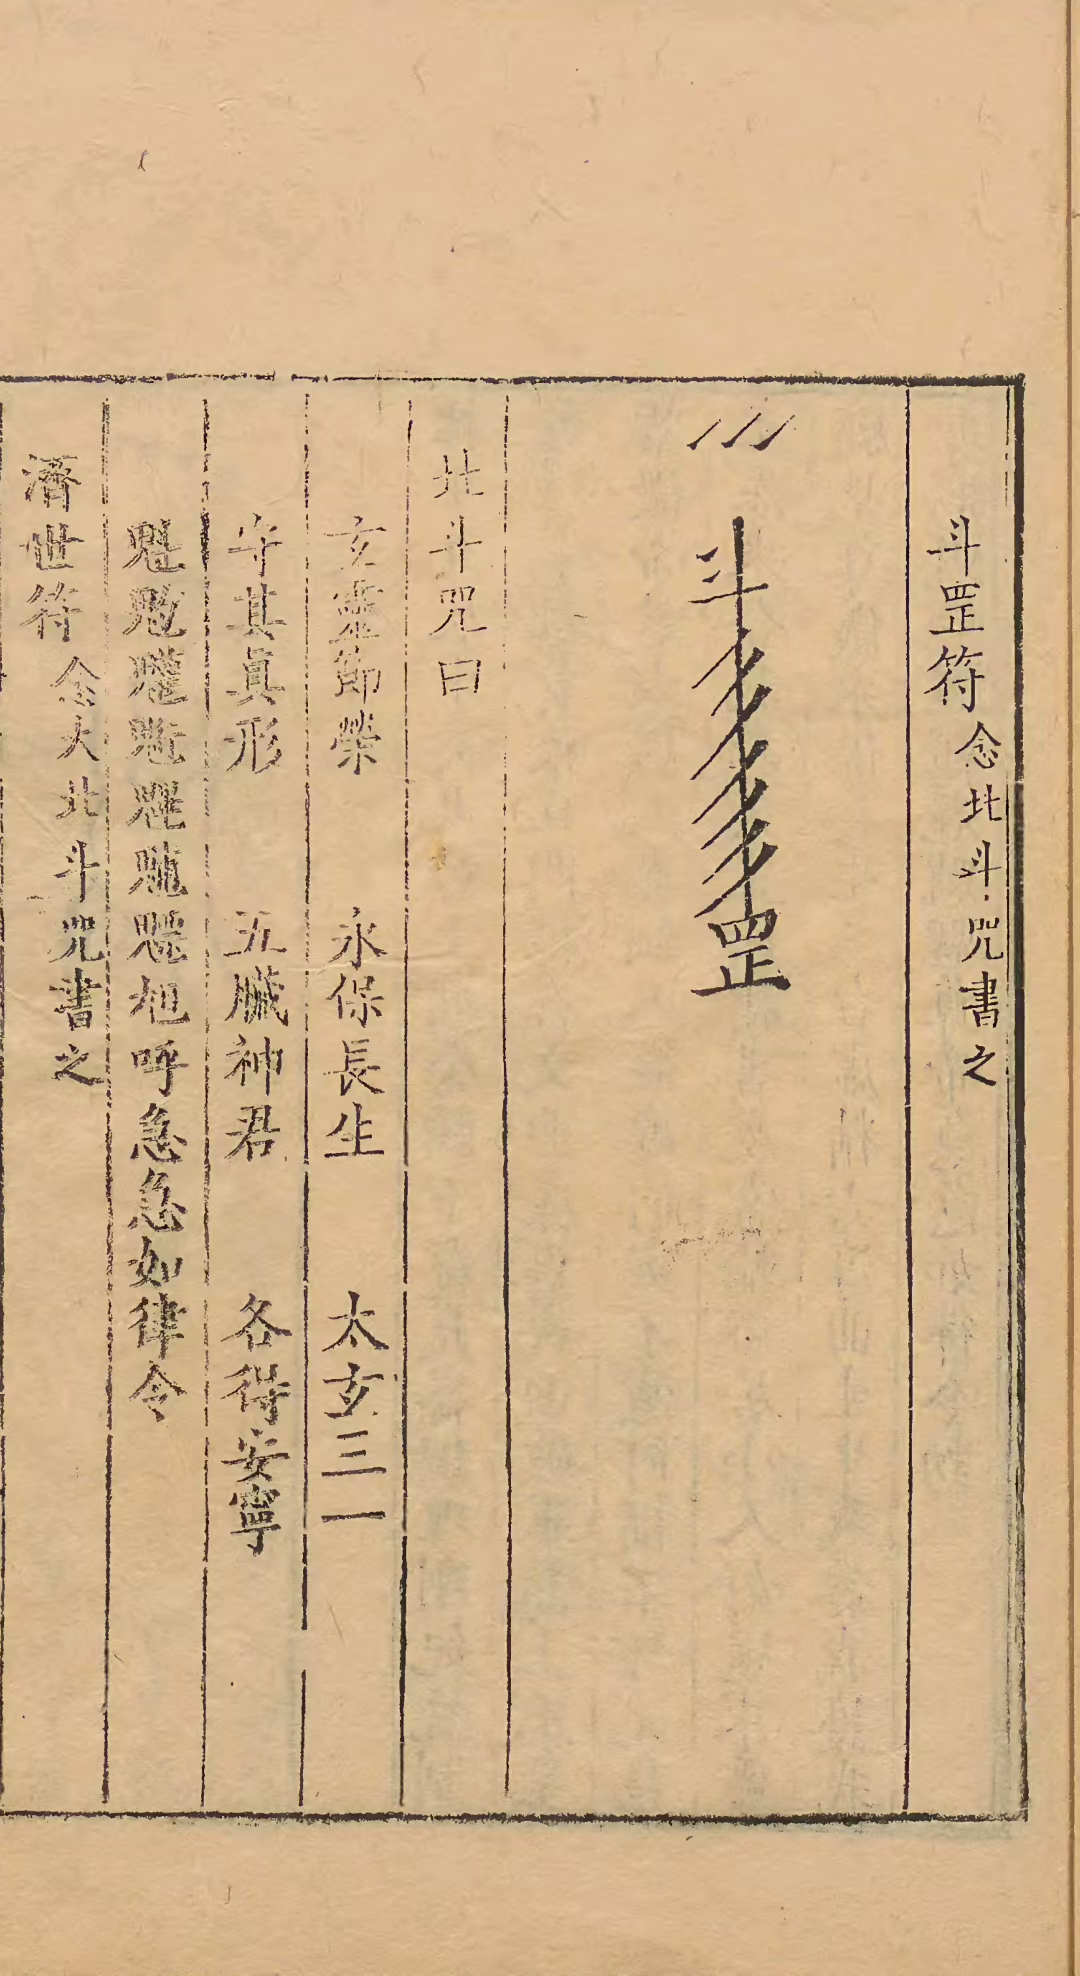 斗罡符 念北斗咒書之
斗 罡
北斗咒曰
玄靈節榮 永保長生 太玄三一
守其眞形 五臟神君 各得安寧
魁 呼急急如律令
濟世符 念大北斗咒書之